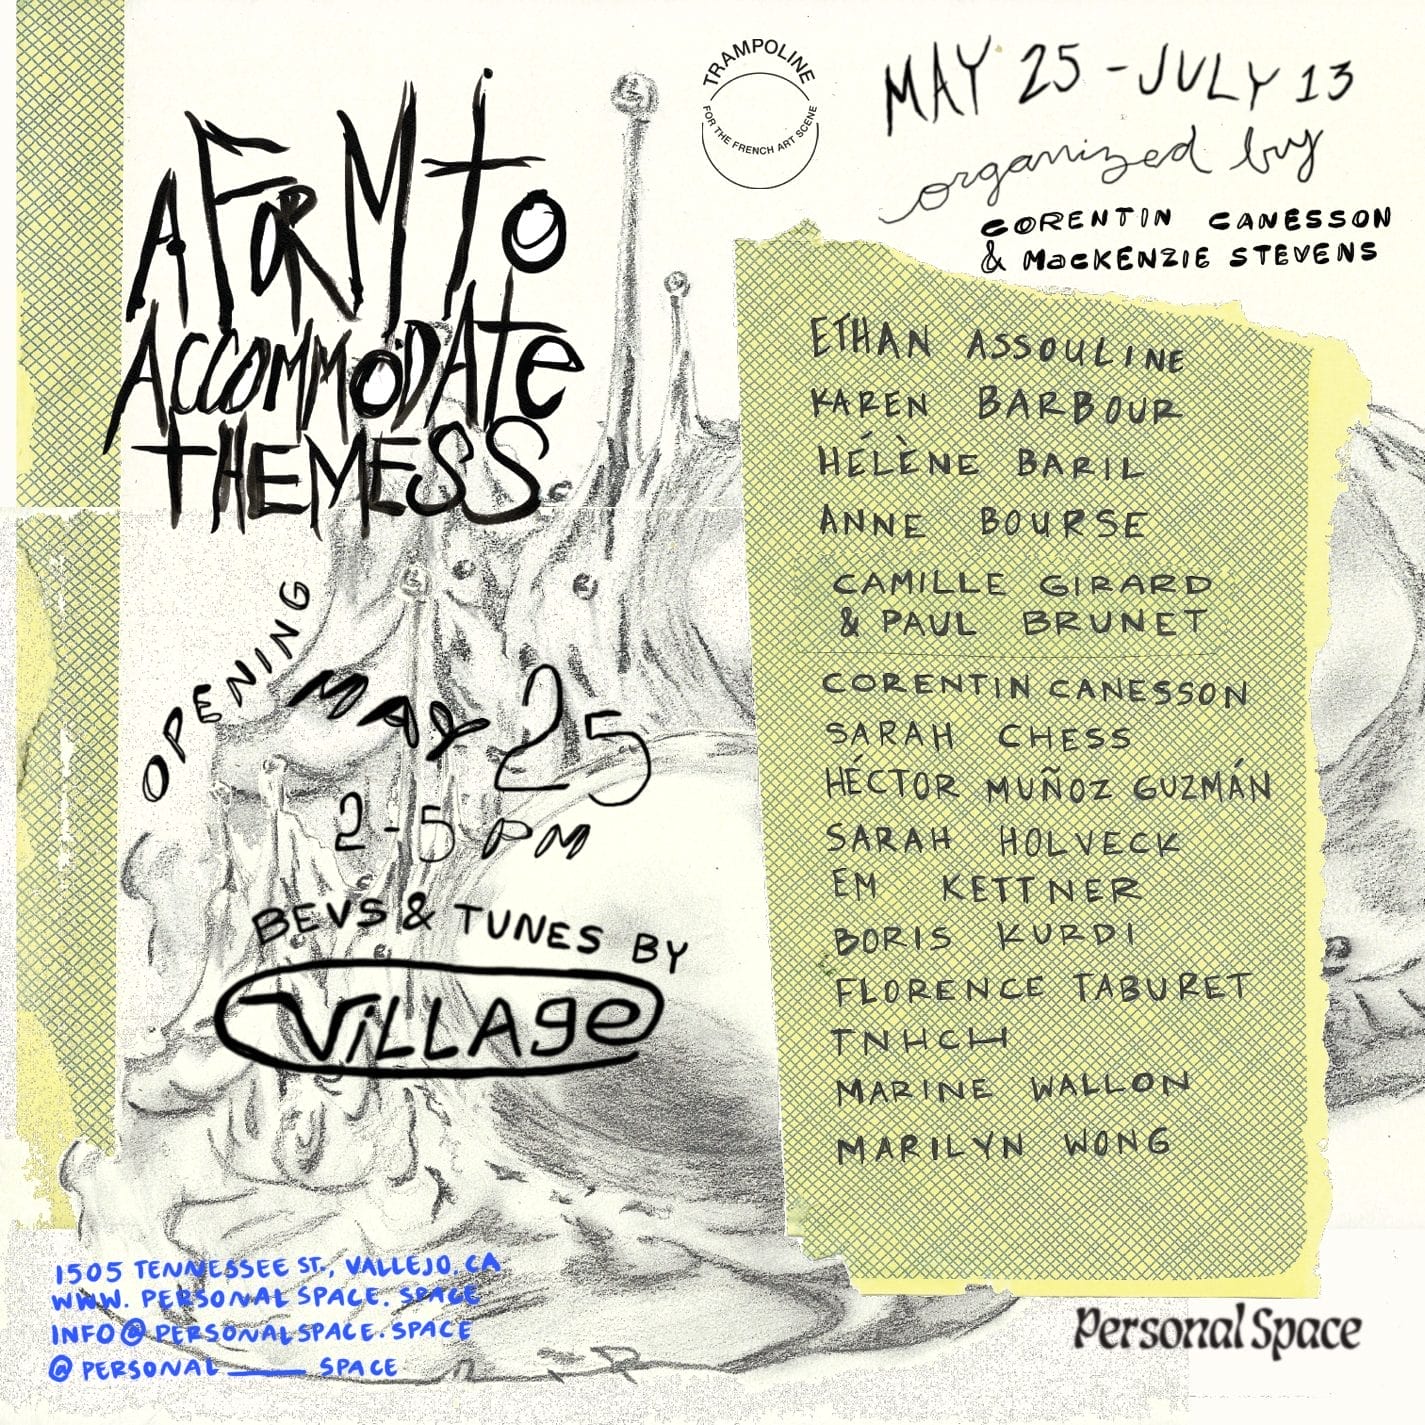 A FORM TO
ACCOMMODATE
THE MESS
TRAMPOLINE
FOR THE FRENCH ART SCENE
MAY 25 - JULY 13
organized by
CORENTIN CANESSON
& MacKENZIE STEVENS
ETHAN ASSOULINE
KAREN BARBOUR
HÉLÈNE BARIL
ANNE BOURSE
CAMILLE GIRARD
& PAUL BRUNET
CORENTIN CANESSON
SARAH CHESS
HÉCTOR MUÑOZ GUZMÁN
SARAH HOLVECK
EM KETTNER
BORIS KURDI
FLORENCE TABURET
TNHCH
MARINE WALLON
MARILYN WONG
OPENING
MAY 25
2-5 PM
BEVS & TUNES BY
VILLAge
1505 TENNESSEE ST., VALLEJO, CA
WWW. PERSONALSPACE. SPACE
INFO@PERSONALSPACE.SPACE
@PERSONAL____SPACE
Personal Space